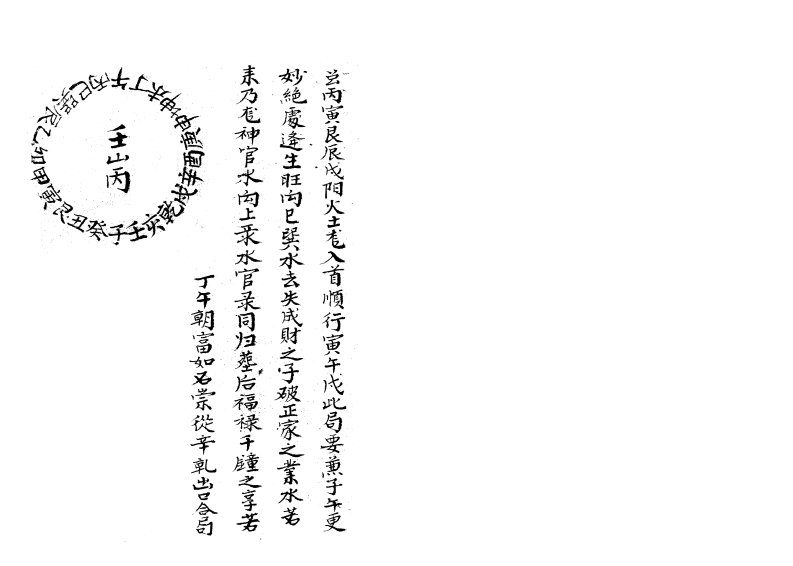 丙寅艮辰戌阳火土龙入首順行寅午戌此局要兼子午更
妙絶處逢生旺向巳巽水去失成財之子破正家之業水若
来乃龙神官水向上录水官录同归墓后福禄千鍾之享若
丁午朝富如石崇從辛乹出口合局
壬山丙
壬子癸丑艮寅甲卯乙辰巽巳丙午丁未坤申庚酉辛戌乾亥